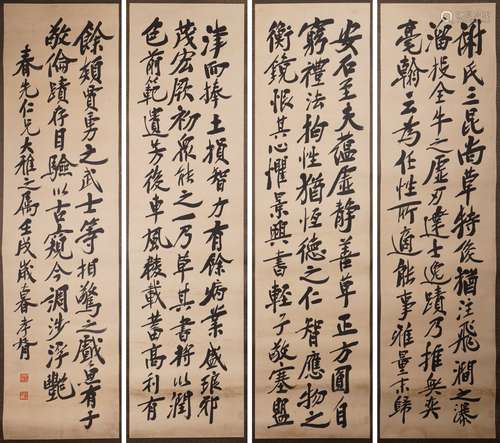 謝氏三昆尚草特俊猶注飛澗之瀑
溜投全牛之虛刃達士逸蹟乃推無奕
毫翰云為任性所適能事雅量末歸
安石至夫蘊虛靜善草正方圓自
窮禮法拘性猶恆德之仁智應物之
衡鏡恨其心懼景興書輕子敬塞盟
津而捧土損智力有餘病業盛琅邪
茂宏厥初眾能之一乃草其書將以潤
色前範遺芳後車風稜載蓄高利有
餘類賈勇之武士等相驚之戲魚有子
敬倫蹟存目驗以古窺今調涉浮豔
春先仁兄大雅之屬壬戌歲暮孝胥